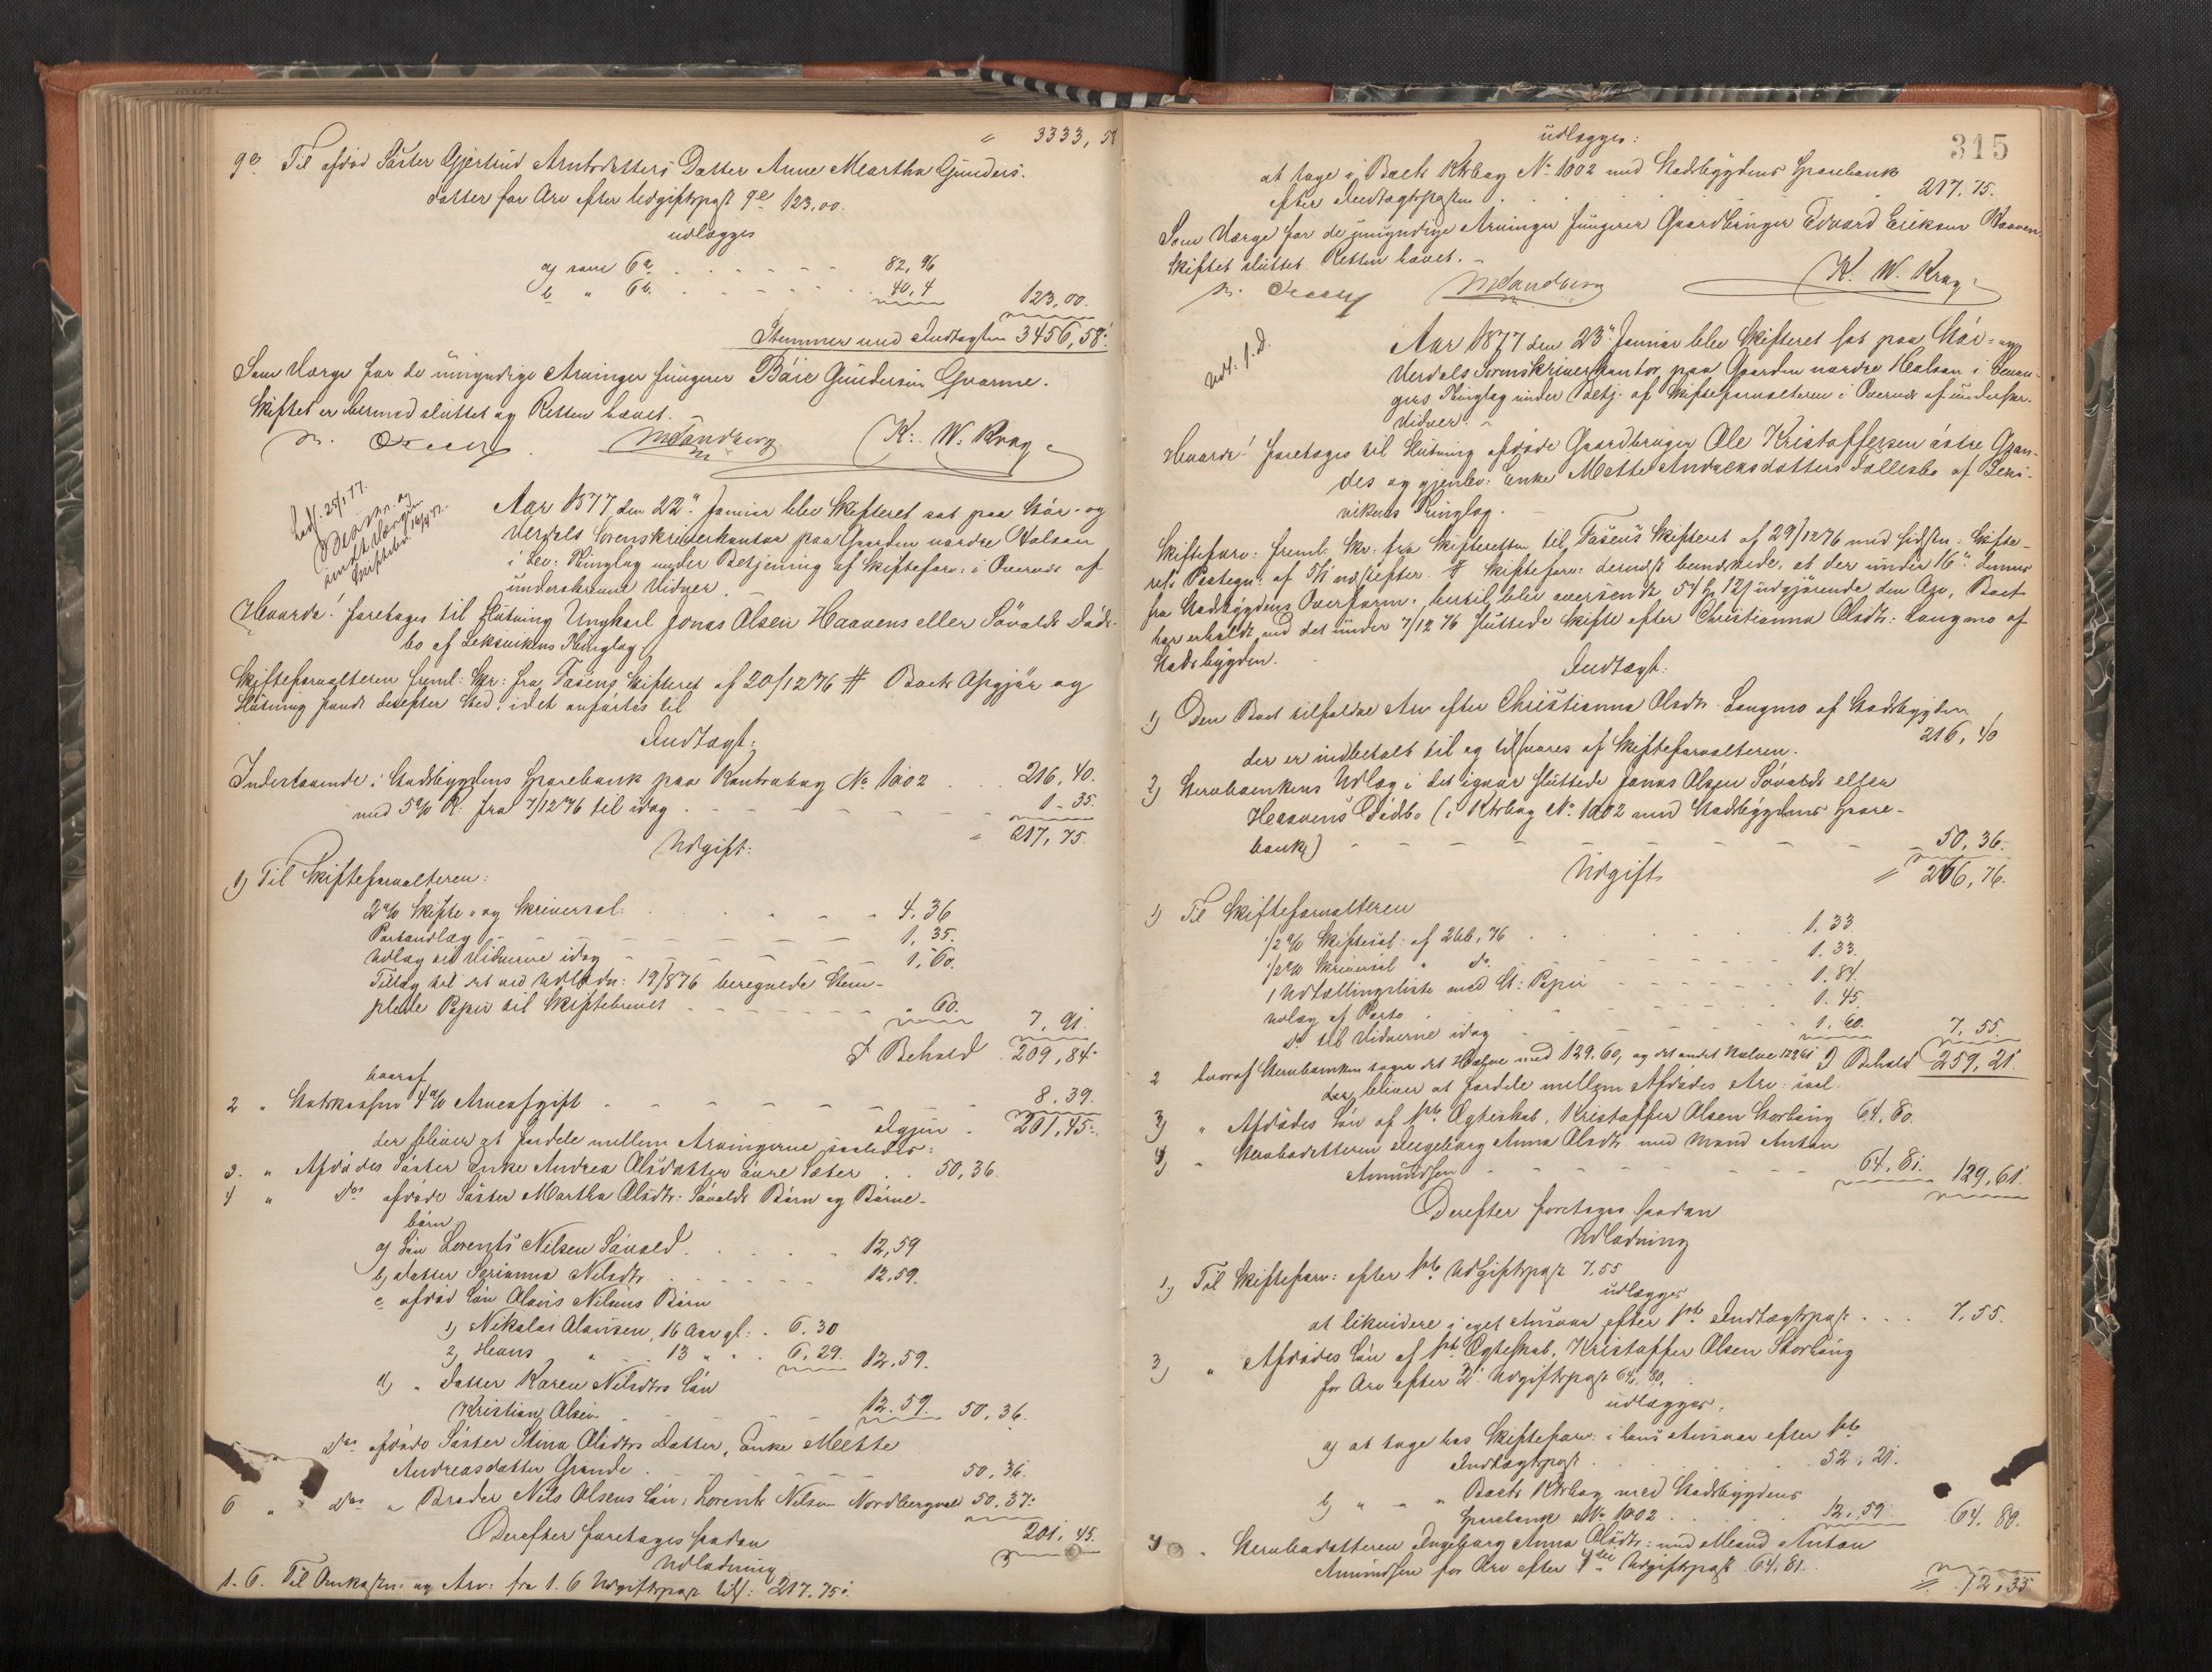 " 3333, 58
9e Til afdød Søster Gjertrud Arntsdatters Datter Anne Martha Gunders-
datter for Arv efter Udgiftspost 9e 123,00.
udlægges
a) som 6a . . . . . . 82,96
b " 6b. . . . . . . 40,4
123,00.
Stemmer med Indtægten 3456,58.
Som Værge for de umyndige Arvinger fungerer Baie Gundersen Qvarme.
Skiftet er hermed sluttet og Retten hævet.
MSandberg K. W. Krag
Aar 1877 den 22de Januar blev Skifteret sat paa Stør- og
Verdals Sorenskriverkontor paa Gaarden nordre Halsan
i Lev: Thinglag under Betjening af Skifteforv: i Overvær af
underskrevne Vidner.
Hvorda! foretages til Slutning Ungkarl Jonas Olsen Haavens eller Søvalds Døds-
bo af Leksvikens Thinglag
Skifteforvalteren freml: Skr: fra Fosens Skifteret af 20/12 76 # Boets Opgjør og
Slutning fandt derefter Sted, idet anførtes til
Indtægt:
Indestaaende i Stadsbygdens Sparebank paa Kontrabog No 1002 . . . 216,40.
med 5% R. fra 7/12 76 til idag - - - - - 1-35.
= 217,75.
Udgift:
1) Til Skifteforvalteren:
2% Skifte- og Skriversal: . . . . . 4,36
Portoudlæg - - - - - - 1,35.
Udlæg til Vidnerne idag - - - - - 1,60.
Tillæg til det ved Udlodn: 19/8 76 beregnede Stem-
plede Papir til Skiftebrevet - - - - - " 60.
7,91.
I Behold 209,84.
hvoraf
2 " Statskassen 4% Arveafgift - - - - - 8.39.
Igjen . 201,45.
der bliver at fordele mellem Arvingerne saaledes:
3. " Afdødes Søster Enke Andrea Olsdatter øvre Sæter . . 50,36.
4 " Ds afdøde Søster Martha Olsdtr: Søvalds Børn og Børne-
børn
a) Søn Lorents Nilsen Søvald . . . . . 12,59
b) Datter Serianna Nilsdtr . . . . . 12,59.
c afdød Søn Olavis Nilsens Børn
1) Nikolai Olavisen, 16 Aar gl: . 6.30
2) Hans " 13 " . . 6,29. 12,59.
d) " Datter Karen Nilsdtrs Søn
Kristian Olsen - - - - - 12.59. 50,36.
Ds afdøde Søster Stina Olsdtrs Datter, Enke Mette
Andreasdatter Grande . - - - - 50,36.
6 " " Ds " Broder Nils Olsens Søn: Lorents Nilsen Nordbergvald 50.37.
201,45.
Derefter foretages saadan
Udlodning
1.6. Til og Arv: fra 1.6 Udgiftspost tils: 217.75.
315
udlægges:
at tage i Boets Ktrbog No 1002 med Stadsbygdens Sparebank
efter Indtægtsposten . . . . . . 217.75.
Som Værge for de umyndige Arvinger fungerer Gaardbruger Edvard Eriksen Haaven.
Skiftet sluttet. Retten hævet. -
MSandberg K. W. Krag
Udf. s.d.
Aar 1877 den 23de Januar blev Skifteret sat paa Stør- og
Verdals Sorenskriverkontor paa Gaarden nordre Halsan i Levan-
gers Thinglag under Betj: af Skifteforvalteren i Overvær af underskr.
Vidner. -
Hvorda! foretages til Slutning afdøde Gaardbruger Ole Kristoffersen østre Gran-
des og gjenlev: Enke Mette Andreasdatters Fællesbo af Leks-
vikens Thinglag.
Skifteforv: freml: Skr: fra Skifteretten til Fosens Skifteret af 29/12 76 med sidstn: Skifte-
rets Paategn: af 5/1 næstefter. # Skifteforv: dernæst bemærkede, at der under 16de dennes
fra Stadsbygdens Overform: hertil blev oversendt 54 Sp 12 s udgjørende den Arv, Boet
har erholdt ved det under 7/12 76 sluttede Skifte efter Christianna Olsdtr: Langmo af
Stadsbygden.
Indtægt:
1) Den Boet tilfaldne Arv efter Christianna Olsdtr. Langmo af Stadsbygden
der er indbetalt til og tilsvares af Skifteforvalteren. 216,40
2) Stervboenkens Udlæg i det igaar sluttede Jonas Olsen Søvalds eller
Haavens Dødsbo (i Ktrbog No 1002 med Stadsbygdens Spare-
bank) - - - - - - - 50,36.
= 266,76.
Udgift
1) Til Skifteforvalteren
1/2% Skiftesal: af 266,76 . . . . . 1.33
1/2% Skriversal " do - - - - 1.33.
1 Udlodningsliste med St: Papir - - - - 1.84.
Udlæg af Porto . - - - - 1.45.
Do til Vidnerne idag - - - - 1.60. 7,55.
I Behold 259,21.
2 hvoraf Stervboenken tager det Halve med 129.60, og det andet Halve 129,61
der bliver at fordele mellem Afdødes Arv: saal.
3) " Afdødes Søn af 1ste Ægteskab, Kristoffer Olsen Storhaug 64,80.
4) " Stervbodatteren Ingeborg Anna Olsdtr. med Mand Anton
Amundsen - - - - - - 64.81. 129,61.
Derefter foretages saadan
Udlodning
1) Til Skifteforv: efter 1ste Udgiftspost 7.55
udlægges
at likvidere i eget Ansvar efter 1ste Indtægtspost . . . 7,55.
3) " Afdødes Søn af 1ste Ægteskab, Kristoffer Olsen Storhaug
for Arv efter 3die Udgiftspost 64,80.
udlægges.
a) at tage hos Skifteforv: i hans Ansvar efter 1ste
Indtægtspost . . . . . . 52,21.
b) " - " Boets Ktrbog med Stadsbygdens
Sparebank No 1002 . . . . 12,59 64.80.
4 . Stervbodatteren Ingeborg Anna Olsdtr: med Mand Anton
Amundsen for Arv efter 4de Udgiftspost 64,81.
= 72,35